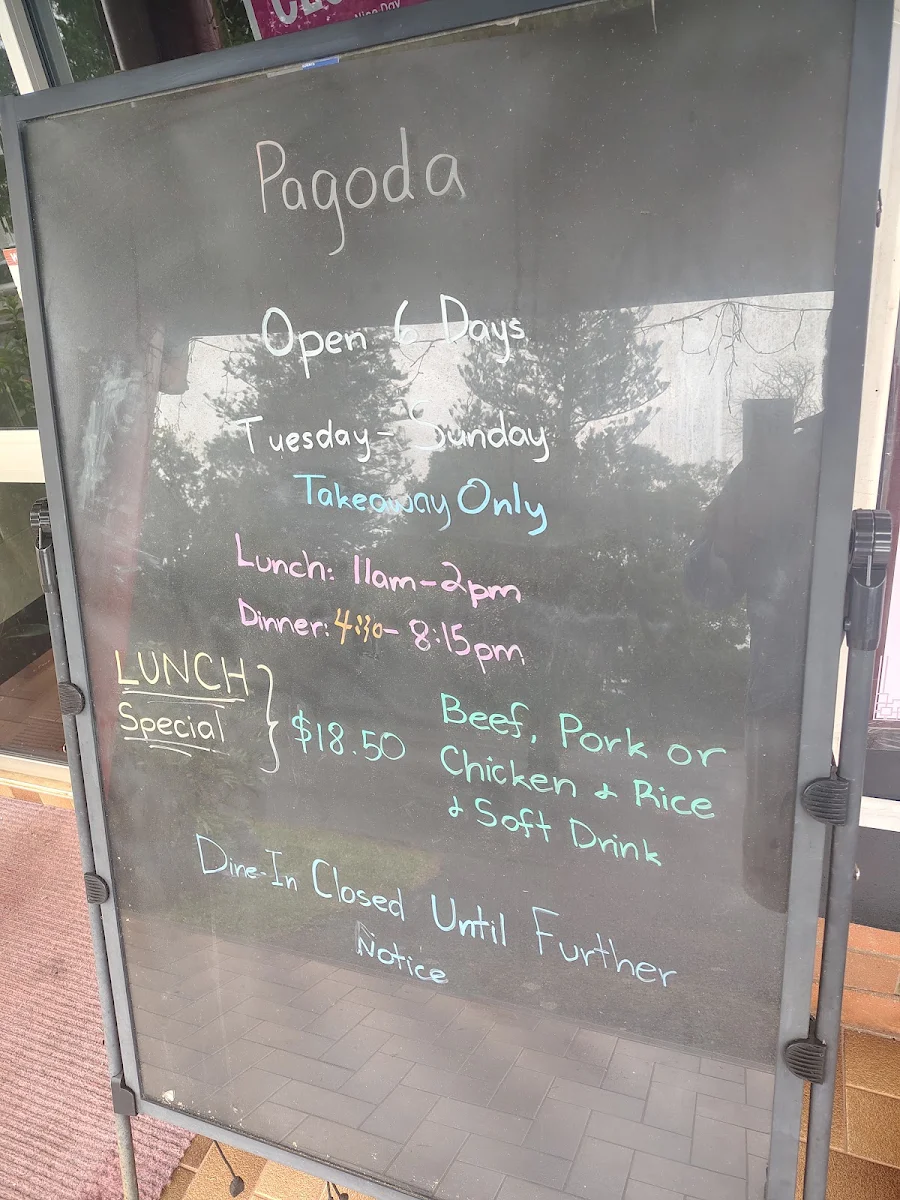 Nice Day
Pagoda
Open 6 Days
Tuesday - Sunday
Takeaway Only
Lunch: 11am - 2pm
Dinner: 4:30 - 8:15pm
LUNCH
Special
$18.50
Beef, Pork or
Chicken & Rice
& Soft Drink
Dine-In Closed Until Further
Notice